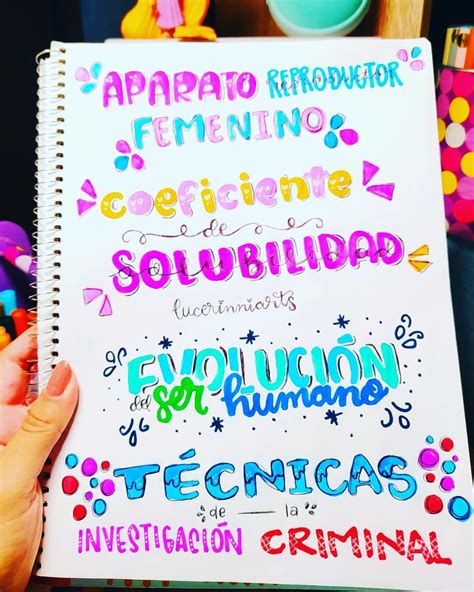 APARATO REPRODUCTOR
FEMENINO
Coeficiente
de
SOLUBILIDAD
lucerinniarts
EVOLUCIÓN
del ser humano
TÉCNICAS
de la
INVESTIGACIÓN CRIMINAL